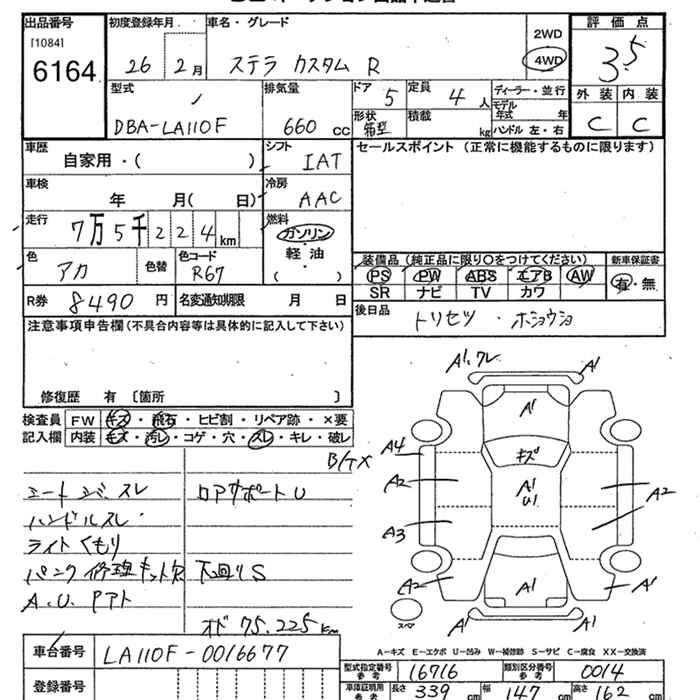 出品番号
[1084]
6164
初度登録年月
26 2月
車名・グレード
ステラ カスタム R
2WD
4WD
評価点
3.5
外装 内装
C C
型式
DBA-LA110F
排気量
660 cc
ドア
5
定員
4人
形状
箱型
積載
kg
ディーラー・並行
モデル年式 年
ハンドル 左・右
車歴
自家用・( )
シフト
IAT
セールスポイント (正常に機能するものに限ります)
車検
年 月( 日)
冷房
AAC
走行
7万5千224km
燃料
ガソリン
軽油
( )
色
アカ
色替
色コード
R67
装備品 (純正品に限り○をつけてください)
PS PW ABS エアB AW
SR ナビ TV カワ
新車保証書
有・無
R券 8490円
名変通知期限 月 日
後日品
トリセツ・ホショウショ
注意事項申告欄(不具合内容等は具体的に記入して下さい)
修復歴 有 〔箇所 〕
検査員記入欄
FW キズ・飛石・ヒビ割・リペア跡・×要
内装 キズ・汚レ・コゲ・穴・スレ・キレ・破レ
シートコゲ・スレ ロアサポートU
ハンドルスレ
ライトくもり
パンク修理キット欠 下廻りS
A.U.Pアト
オド 75.225km
A1.ワレ A1
A1
キズ
A1
U1
A4
A2 A2
A3
A2 A1
A1
A1 A1
スペア
A−キズ E−エクボ U−凹み W−補修跡 S−サビ C−腐食 XX−交換済
車台番号 LA110F-0016677
登録番号
型式指定番号 参考 16716
類別区分番号 参考 0014
車庫証明用 参考 長さ 339 cm 幅 147 cm 高さ 162 cm